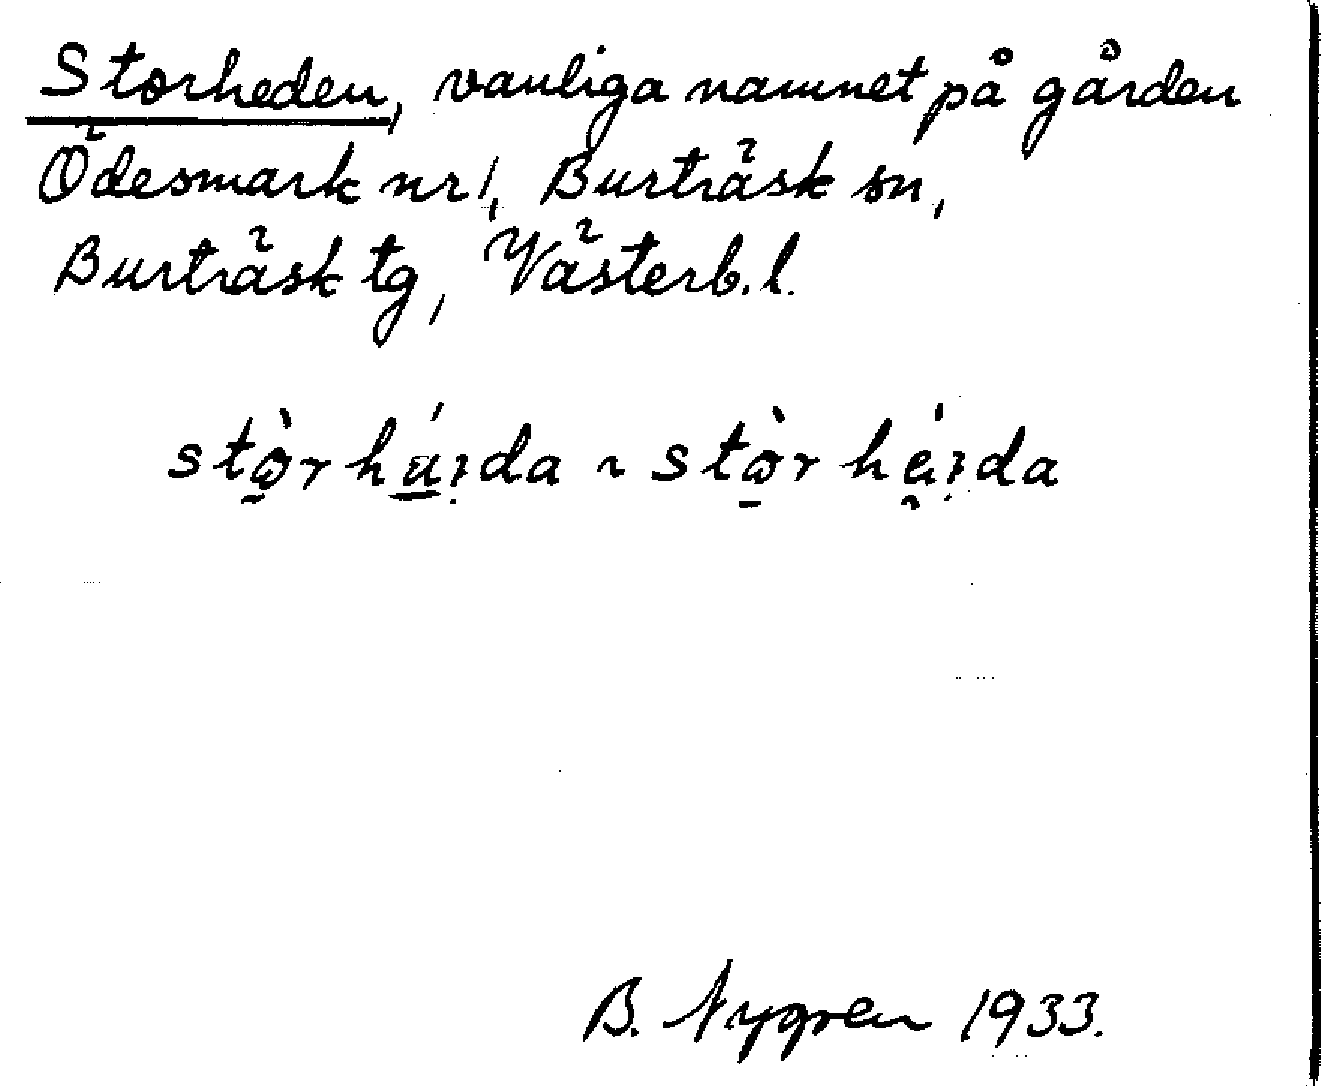 Storheden, vanliga namnet på gården
Ödesmark nr 1, Burträsk sn,
Burträsk tg, Västerb. l.
stò̠rhú̠i̤da ~ stò̠rhé̮i̤da
B. Nygren 1933.